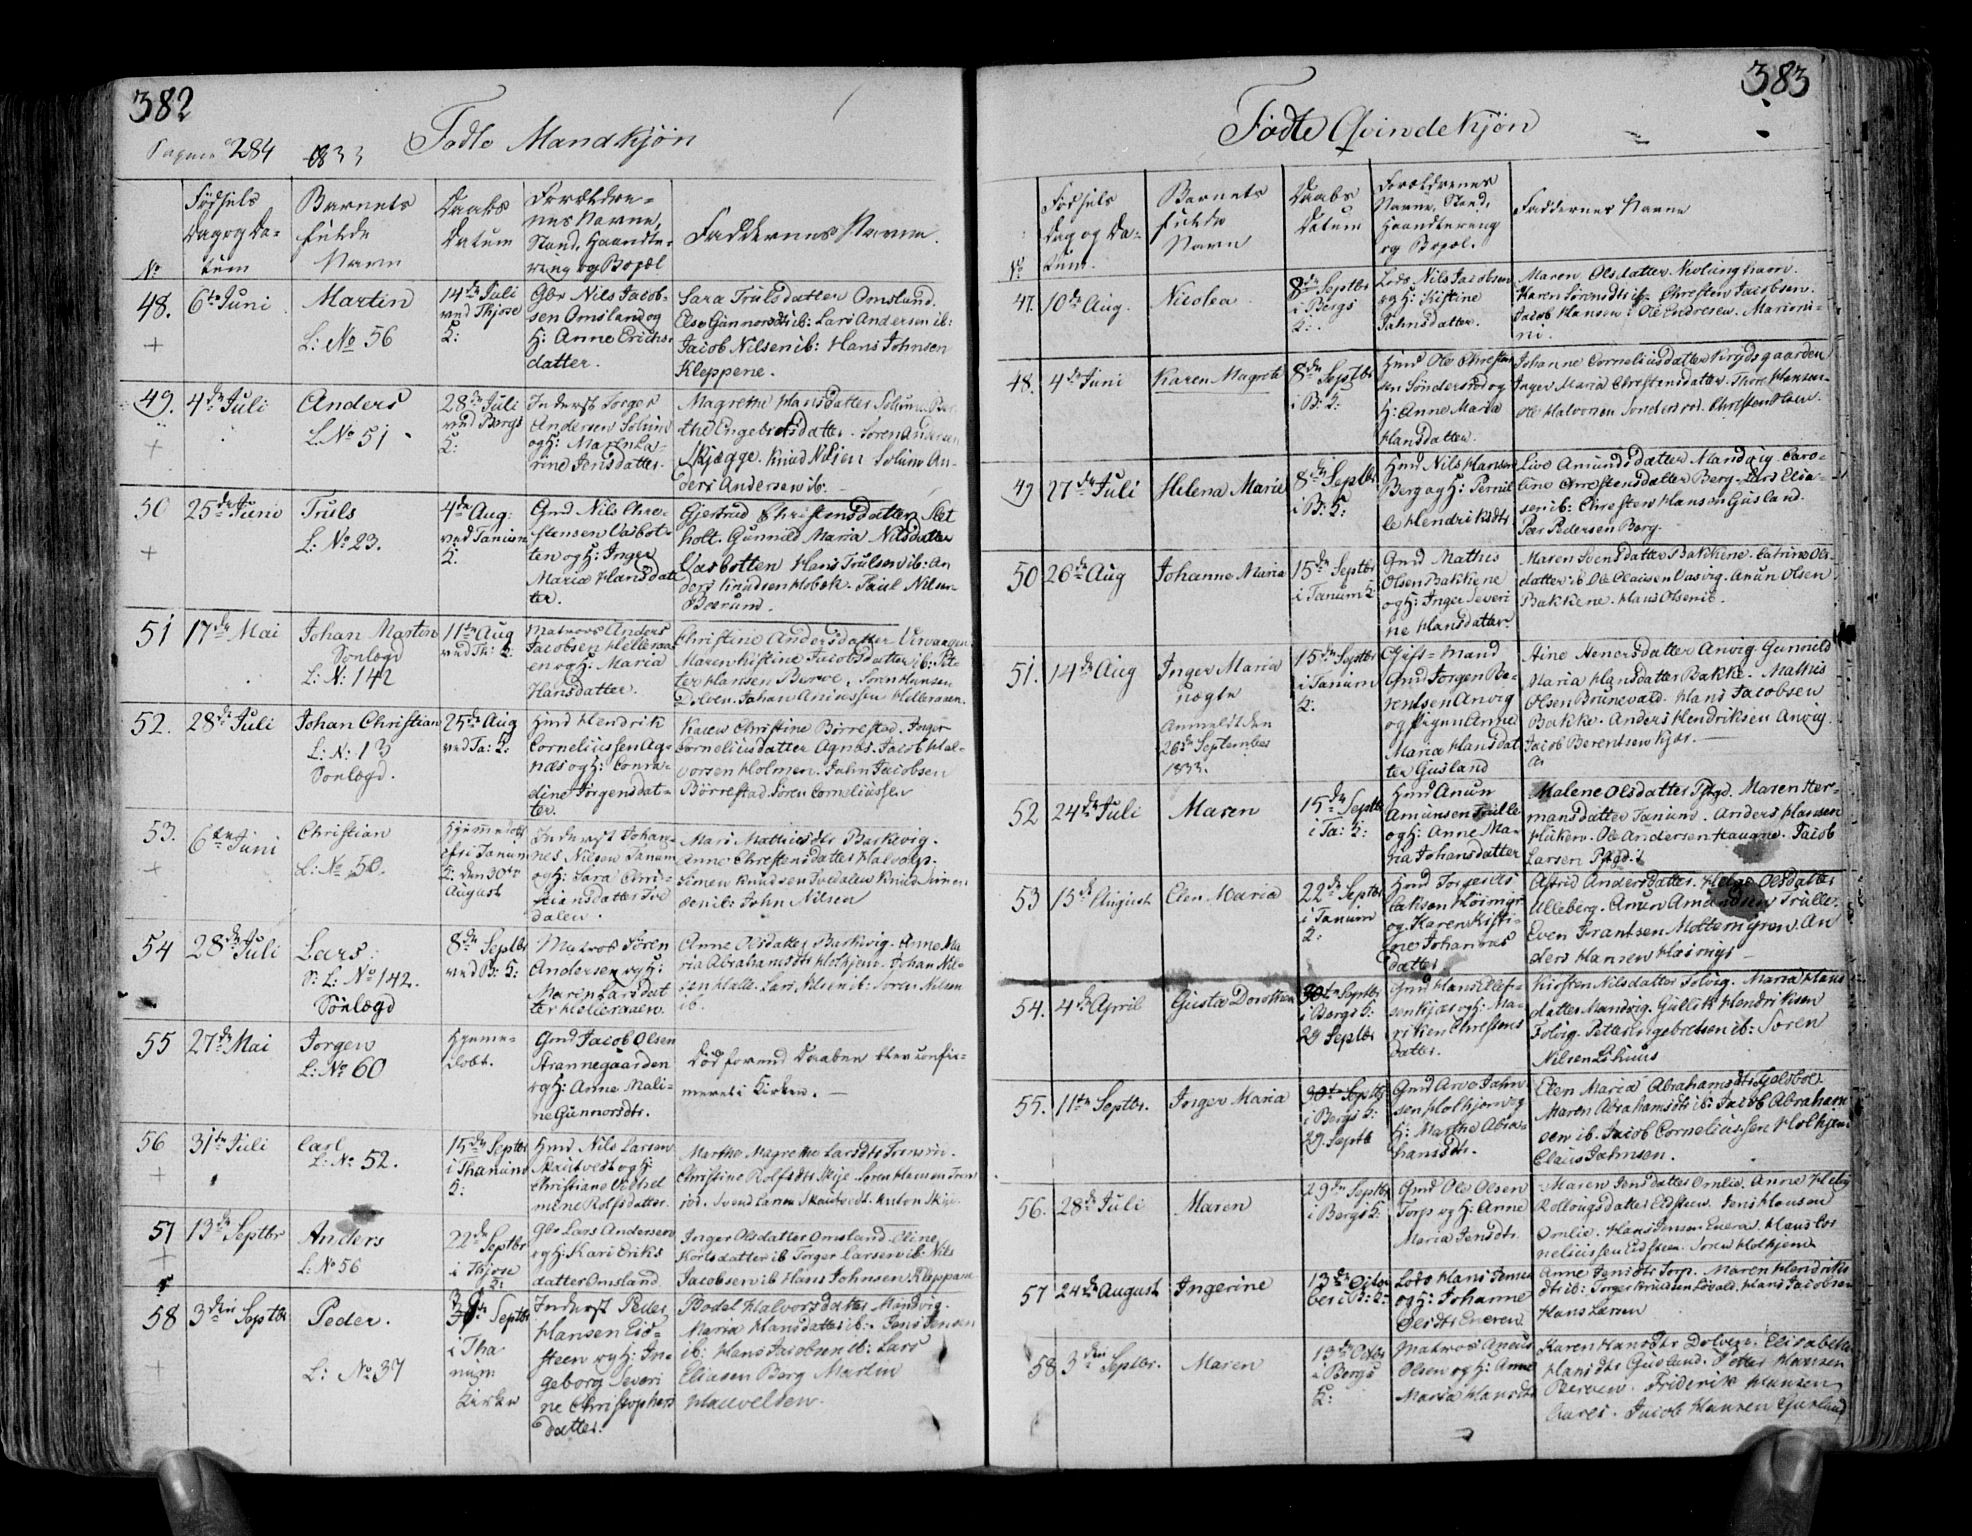 382
284 1833
Fødte Mandkjøn
No
Fødsels
Dag og Da-
tum
Barnets
fulde
Navn
Daabs
Datum
Forældre-
nes Navne,
Stand, Haandte-
ring og Bopæl
Faddernes Navne.
48. 6te Juni
Martin
L: No 56
14de Juli
ved Thjøse
K:
Gbr Nils Jacob-
sen Omsland og
H: Anne Erichs-
datter.
Sara Trulsdatter Omsland.
Else Gunnorsdtr ib: Lars Andersen ib:
Jacob Nilsen ib: Hans Johnsen
Kleppene.
49. 4de Juli
Anders
L No 51
28de Juli
ved Bergs
K:
Inderst Torger
Andersen Solum
og H: Maren La-
rine Jensdatter.
Magrethe Hansdatter Solum. Ber-
the Engebretsdatter. Søren Andersen
Skjægge. Knud Nilsen Solum An-
ders Andersen ib.
50 25de Juni
Truls
L: No 23.
4de Aug:
ved Tanum
K:
Gmd Nils Chre-
stensen Vasbot-
ten og H: Inger
Maria Hansdat
ter.
Gjertrud Christensdatter Slet
holt. Gunnild Maria Nilsdatter
Vasbotten Hans Trulsen ib: An
ders Knudsen Hobek. Paul Nilsen
Bærund.
51 17de Mai
Johan Martin
Sønlægd
L: N: 142
11te Aug
ved Th: K:
Matros Anders
Jacobsen Helleraa
en og H: Maria
Hansdatter.
Christine Andersdatter
Maren Kistine Jacobsdatter ib: Pet-
ter Hansen Berve. Søren Hansen
Dolven. Johan Helleraaen.
52. 28de Juli
Johan Christian
L: N: 13
Sønlægd.
25de Aug
ved Ta: K:
Hmd Hendrik
Corneliussen Ag-
næs og H: Conra-
dine Jørgensdat-
ter.
Karen Christine Børrestad. Inger
Corneliusdatter Agnæs. Jacob Hal-
vorsen Holmen. John Jacobsen
Børrestad. Søren Corneliussen
53. 6te Juni
Christian
L: No 50.
Hjemmedøbt
Tanum
K: den 30te
August
Inderst Johan-
nes Nilsen Tanum
og H: Sara Chri-
stiansdatter Tve
dalen.
Mari Mathiesdtr Barkevig.
Anne Christensdatter
Simen Knudsen Tvedalen Knud Simen
sen ib: John Nilsen
54 28de Juli
Lars
S: L: No 142.
Sønlægd
8de Septbr
ved B: K:
Matros Søren
Andersen og H:
Maren Larsdat
ter Helleraaen.
Anne Olsdatter Barkvig. Anne Ma-
ria Abrahamsdtr Holkjem. Johan Nil-
sen Halle. Lars Nilsen ib: Søren Nilsen
ib.
55 27de Mai
Jørgen
L: No 60
Hjemme-
døbt.
Gmd Jacob Olsen
Strannegaarden
og H: Anne Mali-
ne Gunnorsdtr.
Død forend Daaben blev confir-
meret i Kirken.
56 31te Juli
Carl
L: No 52.
15de Septbr
i Thanum
K:
Hmd Nils Larsen
Skoutvedt og H:
Christiane Vilhel
mine Rolfsdatter.
Marthe Magrethe Larsdtr
Christine Rolfsdtr Skije. Søren Hansen
Svend Larsen Skoutvedt. Anton Skije.
57 13de Septbr
Anders
L: No 56
22de Septbr
i Thjøse
K:
Gbr Lars Andersen
og H: Kari Eriks
datter Omsland
Inger Olsdatter Omsland. Eline
datter ib Torger Larsen ib: Nils
Jacobsen ib Hans Johnsen Kleppane
58 3die Septbr
Peder.
L: No 37
Septbr
i Tha
num
Kirke
Inderst Peder
Hansen Eid-
steen og H: In-
geborg Severi
ne Christophers
datter.
Bodel Halvorsdatter Mandvig.
Maria Hansdatter ib: Jens Jensen
ib: Hans Jacobsen ib: Lars
Eliasen Berg Martin
383
Fødte Qvindekjøn
No
Fødsels
Dag og Da-
tum.
Barnets
fulde
Navn
Daabs
Datum
Forældrenes
Navne, Stand,
Haandtering
og Bopæl.
Faddernes Navne
47. 10de Aug.
Nicolea
8de Septbr
i Bergs
K:
Lods Nils Jacobsen
og H: Kistine
Jahnsdatter.
Maren Olsdatter Nevlunghavn.
Karen Sørensdtr ib: Chresten Jacobsen.
Jacob Hansen: Ole Endresen.
48. 4de Juni
Karen Magrete
8de Septbr
i B: K:
Hmd Ole Christen
sen Søndersrød og
H: Anne Maria
Hansdatter.
Johanne Corneliusdatter Krydsgaarden
Inger Maria Chrestensdatter. Thor Hansen
Ole Halvorsen Sondersrød. Christen Olsen.
49 27de Juli
Helena Marie
8de Septbr
i B: K:
Hmd Nils Hansen
Berg og H: Pernil
le Hendriksdtr
Live Amundsdatter Mandvig. Caro-
line Chrestensdatter Berg. Lars Elia-
sen ib: Chresten Hansen Gusland.
Peer Pedersen Berg.
50 26de Aug
Johanne Maria
15de Septbr
i Tanum K:
Gmd Mathis
Olsen Bakkene
og H: Inger Severi
ne Hansdatter
Maren Svensdatter Bakkene. Catrine Ols-
datter ib. Ole Clausen Vasvig. Anun Olsen
Bakkene. Hans Olsen ib.
51. 14de Aug
Inger Maria
uægte
Anmeldt den
26de September
1833.
15de Septbr
i Tanum
K:
Gift-Mand
Gmd Jørgen Be-
rentsen Anvig
og Pigen Anne
Maria Hansdat
ter Gusland
Stine Anvig. Gunnild
Maria Hansdatter Bakke. Mathis
Olsen Brunevald. Hans Jacobsen
Bakke. Anders Hendriksen Anvig.
Jacob Berentsen Kjær.
52 24de Juli
Maren
15de Septbr
i Ta: K:
Hmd Anun
Amunsen Trulle
og H: Anne Ma-
ria Johansdatter
Malene Olsdatter Pgd. Maren Her-
mansdatter Tanum. Anders Hansen
Huken. Ole Andersen Haugne. Jacob
Larsen Pgd.
53 15de August
Elen Maria
22de Septbr
i Tanum
K:
Hmd Torger Is
aksen Høimyr
og Karen Kisti-
ne Johannas
datter
Astrid Andersdatter. Helge Olsdatter
Ulleberg. Anun Amundsen Trulle.
Even Frantsen Mottemyren. An
ders Hansen Høimyr
54. 4de April
Gusta Dorothea
30te Septbr
i Bergs K:
29 Septbr
Gmd Hans Ellef-
sen Kjær og H: Ma-
riken Chrestens
datter.
Kirsten Nilsdatter Foldvig. Maria Hans
datter Mandvig. Gullik Hendriksen
Foldvig. Peter Ingebretsen ib: Søren
Nilsen
55. 11te Septbr.
Inger Maria
30te Septbr
i Bergs K:
29. Septb
Gmd Arve Jahn
sen Holkjem og
H: Marthe Abra-
hamsdtr.
Elen Maria Abrahamsdtr
Maren Abrahamsdtr ib: Jacob Abraham
sen ib. Jacob Corneliussen Holkjem
Claus Jahnsen.
56. 28de Juli
Maren
29de Septbr
i Bergs K:
Gmd Ole Olsen
Torp og H: Anne
Maria Jensdtr
Maren Jensdatter Omlie. Anne Helvig
Rollougsdatter Eidsteen. Jens Hansen
Omlie. Hans Jensen Hans Cor
neliussen Eidsteen. Søren Holkjem
57 24de August
Ingerine
13de Octo
ber i B: K:
Lods Hans Jensen
og H: Johanne
Olsdtr Eneren.
Anne Jensdtr Torp. Maren Hendriks
dtr ib: Torger Knudsen Løvald. Hans Jacobsen
Hans Larsen
58 3die Septbr.
Maren
13de Octbr
i Bergs
K:
Matros Anders
Olsen og H: Anne
Maria Hansdtr
Karen Hansdtr Dolven. Elisabeth
Hansdtr Gusland. Petter Hansen
Berven. Friderik Hansen
Aares. Jacob Hansen Gusland